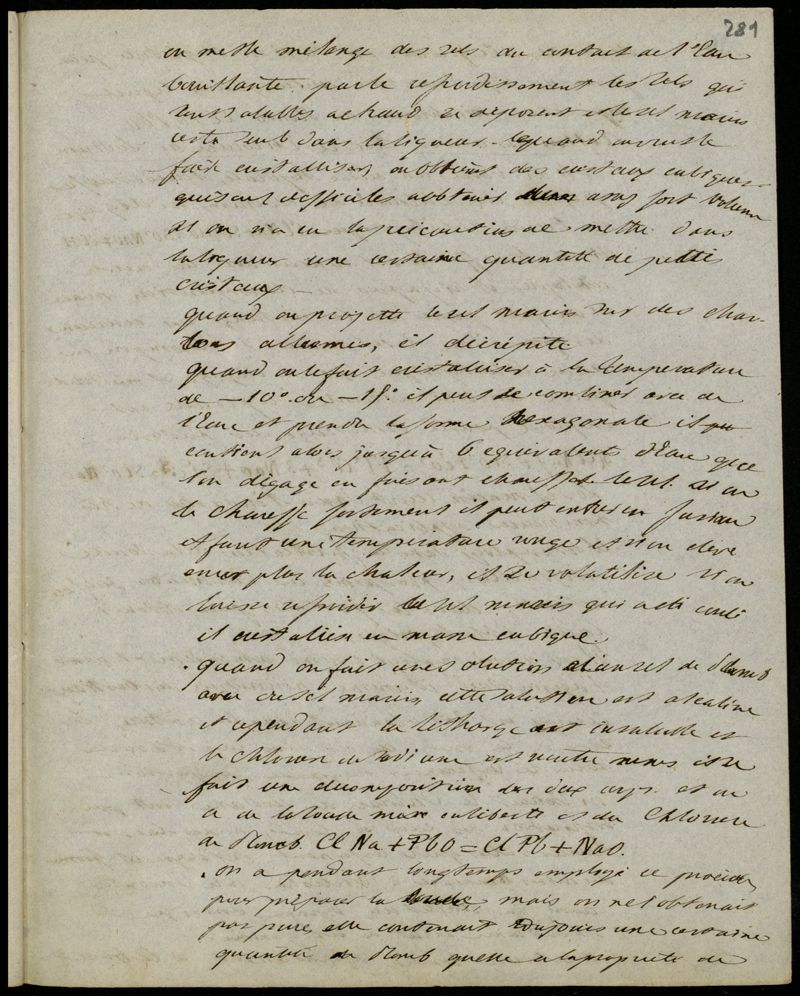 281
on mette mélange des sels du contact de l'Eau
bouillante. par le refroidissement les sels qui
sont solubles a chaud se déposent et le sel marin
reste seul dans la liqueur. quand on veut le
faire cristalliser, on obtient des cristaux cubiques
qui sont difficiles a obtenir assez fort volume
si on n'a eu la précaution de mettre dans
la liqueur une certaine quantité de petits
cristaux
quand on projette le sel marin sur des char-
bons allumés, il décrépite
quand on le fait cristalliser à la température
de -10° ou -15° il peut se combiner avec de
l'Eau et prendre la forme hexagonale il
contient alors jusqu'à 6 equivalents d'Eau que
l'on dégage en faisant chauffer le sel. si on
le chauffe fortement il peut entrer en fusion
il faut une température rouge et si on élève
encor plus la chaleur, il se volatilise si on
laisse refroidir le sel marin qui a été
il cristallise en masse cubique.
. quand on fait une solution de plomb
avec du sel marin, cette solution est alcaline
et cependant la litharge est insoluble et
le chlorure de sodium est neutre mais il se
fait une décomposition des deux corps et on
a de la soude mise en liberté et du Chlorure
de Plomb. Cl Na + PbO = Cl Pb + NaO.
. on a pendant longtemps employé ce procédé
pour préparer la soude, mais on ne l'obtenait
pas pure, elle contenait toujours une certaine
quantité de Plomb quelle a la propriété de